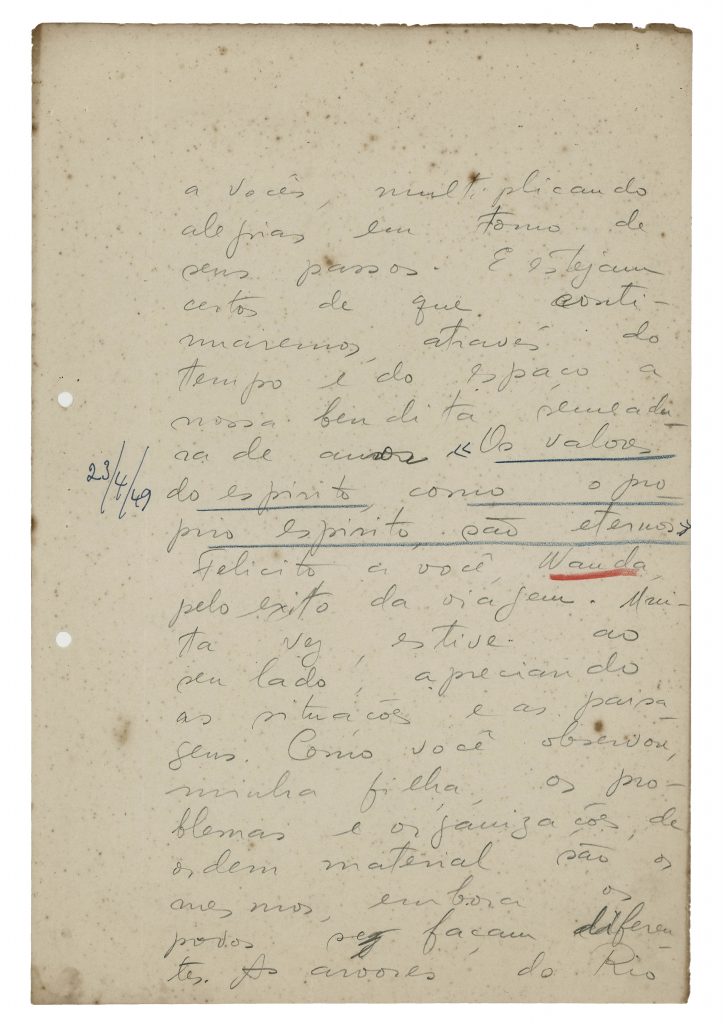 a vocês, multiplicando
alegrias em torno de
seus passos. E estejam
certos de que conti-
nuaremos, através do
tempo e do espaço a
nossa bendita semeadu-
ra de amor «Os valores
23/4/49
do espirito, como o pro
prio espirito, são eternos»
Felicito a você, Wanda,
pelo exito da viagem. Mui-
ta vez, estive ao
seu lado, apreciando
as situações e as paisa
gens. Como você observou,
minha filha, os pro-
blemas e organizações de
ordem material são os
mesmos, embora os
povos se façam diferen
tes. As arvores, do Rio